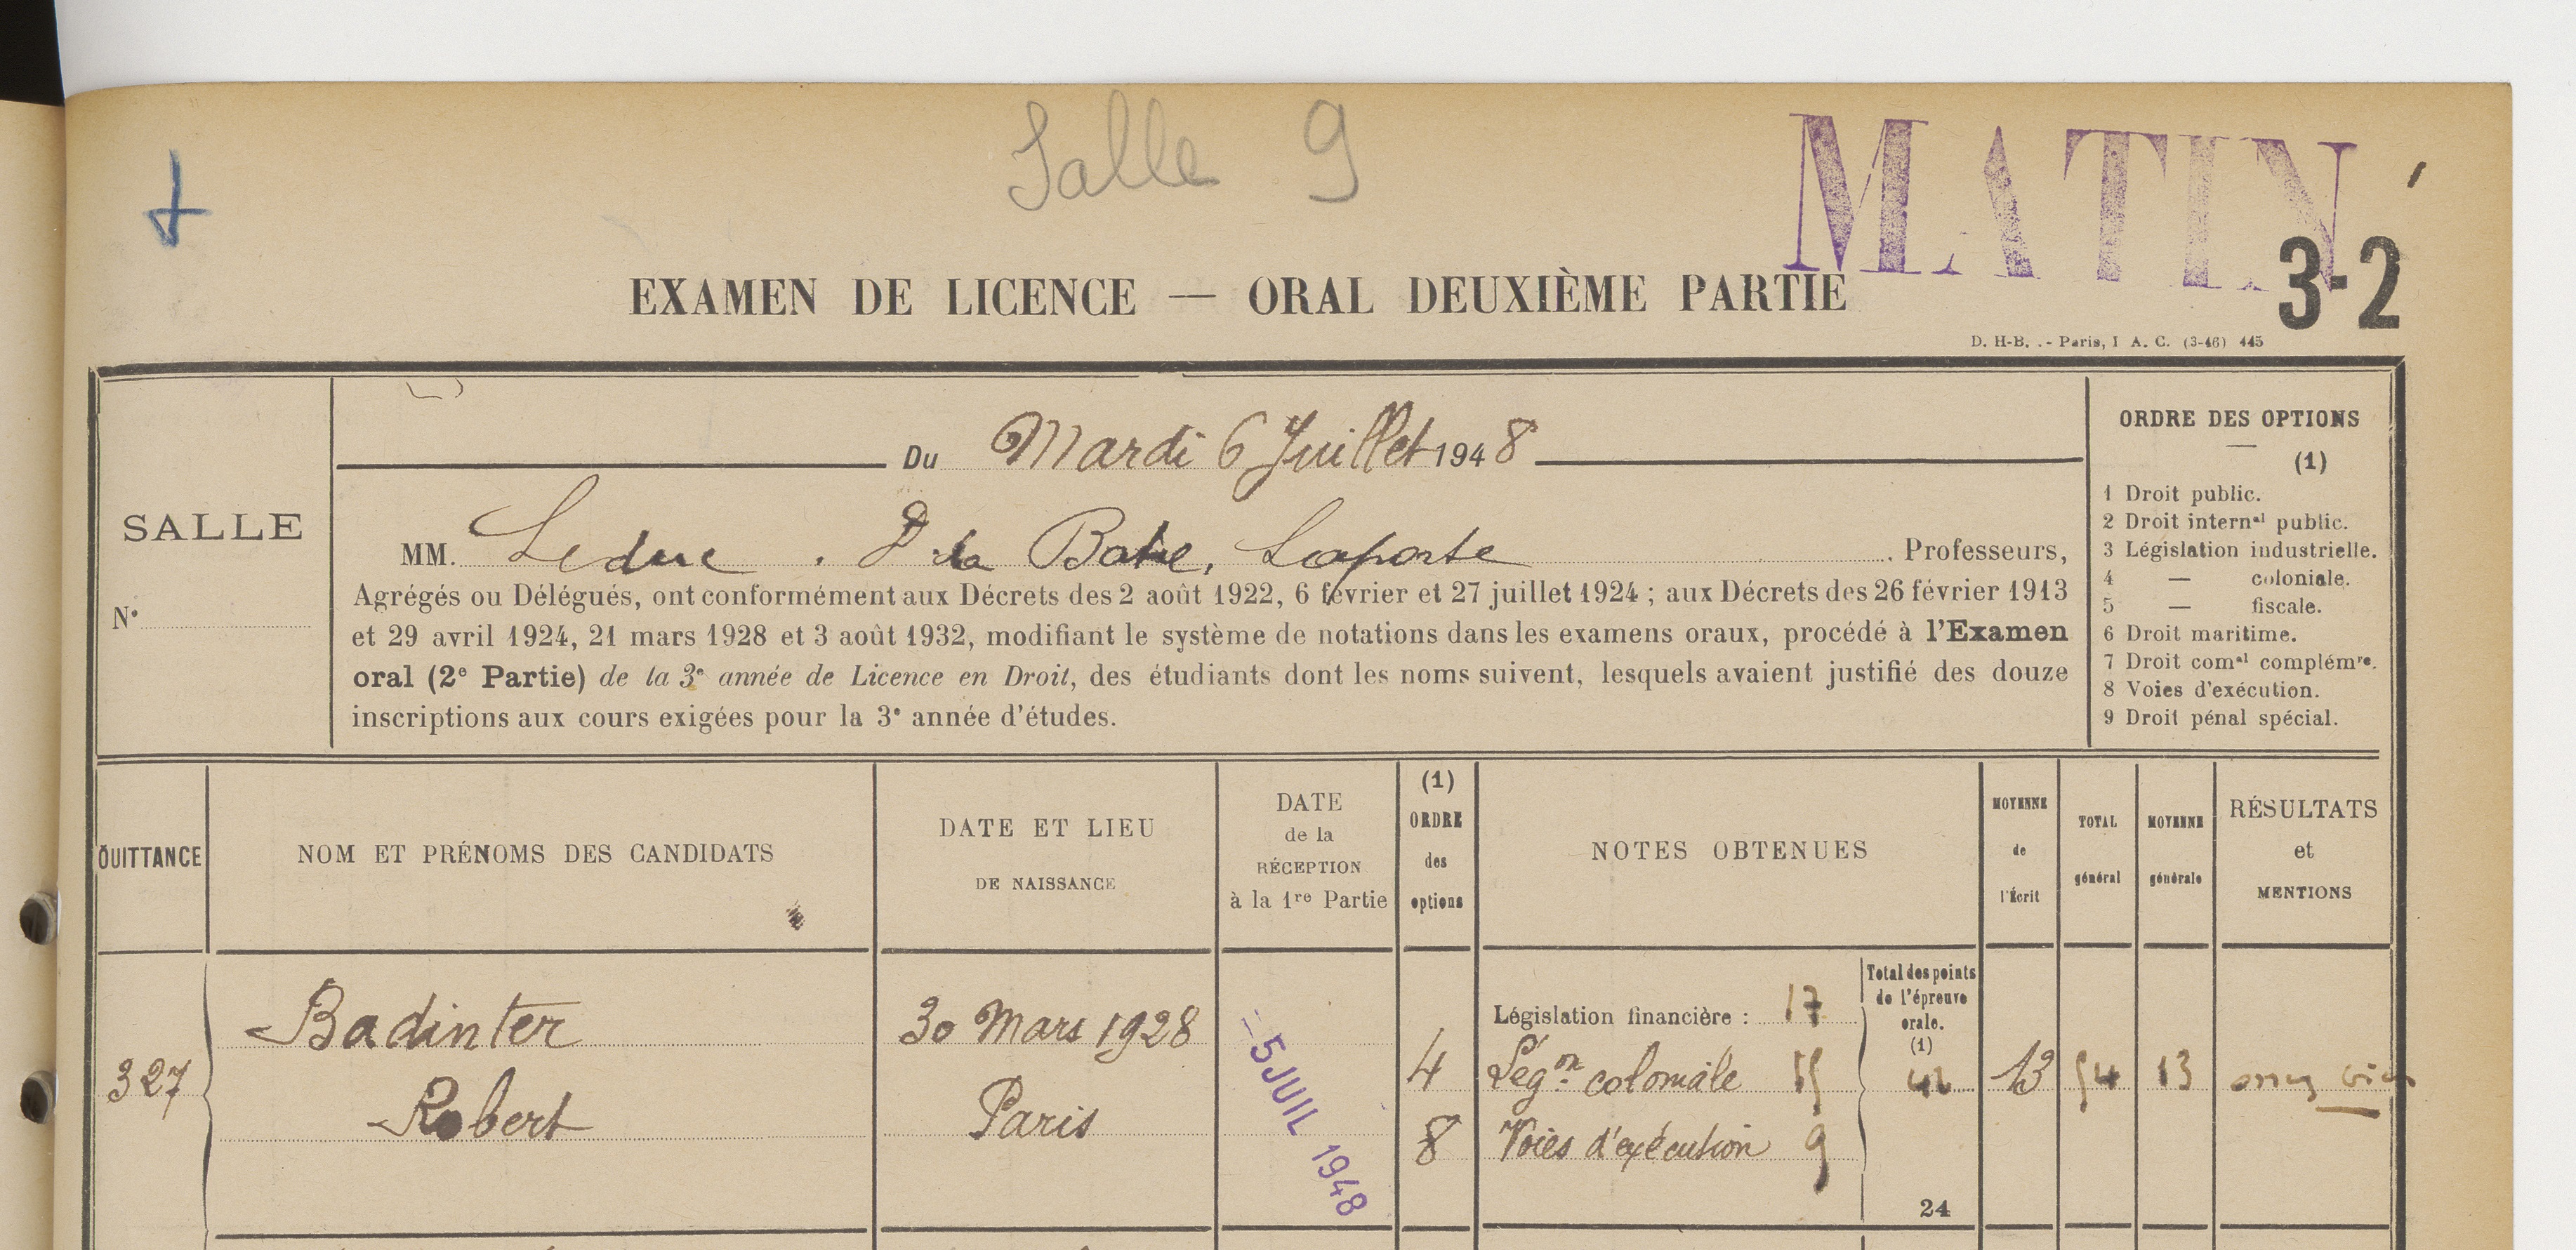 Salle 9
MATIN
3-2
EXAMEN DE LICENCE — ORAL DEUXIÈME PARTIE
D. H-B. .- Paris, I A. C. (3-46) 445
Du Mardi 6 Juillet 1948
SALLE
N°
MM. Leduc . D de la Batie, Laporte . Professeurs,
Agrégés ou Délégués, ont conformément aux Décrets des 2 août 1922, 6 février et 27 juillet 1924 ; aux Décrets des 26 février 1913
et 29 avril 1924, 21 mars 1928 et 3 août 1932, modifiant le système de notations dans les examens oraux, procédé à l'Examen
oral (2e Partie) de la 3e année de Licence en Droit, des étudiants dont les noms suivent, lesquels avaient justifié des douze
inscriptions aux cours exigées pour la 3e année d'études.
ORDRE DES OPTIONS
(1)
1 Droit public.
2 Droit internal public.
3 Législation industrielle.
4 — coloniale.
5 — fiscale.
6 Droit maritime.
7 Droit comal complémre.
8 Voies d'exécution.
9 Droit pénal spécial.
QUITTANCE
NOM ET PRÉNOMS DES CANDIDATS
DATE ET LIEU
DE NAISSANCE
DATE
de la
RÉCEPTION
à la 1re Partie
(1)
ORDRE
des
options
NOTES OBTENUES
MOYENNE
de
l'Écrit
TOTAL
général
MOYENNE
générale
RÉSULTATS
et
MENTIONS
327
Badinter
Robert
30 Mars 1928
Paris
- 5 JUIL 1948
4
8
Législation financière : 17
Légon coloniale 15
Voies d'exécution 9
Total des points
de l'épreuve
orale.
(1)
41
24
13
54
13
assez bien